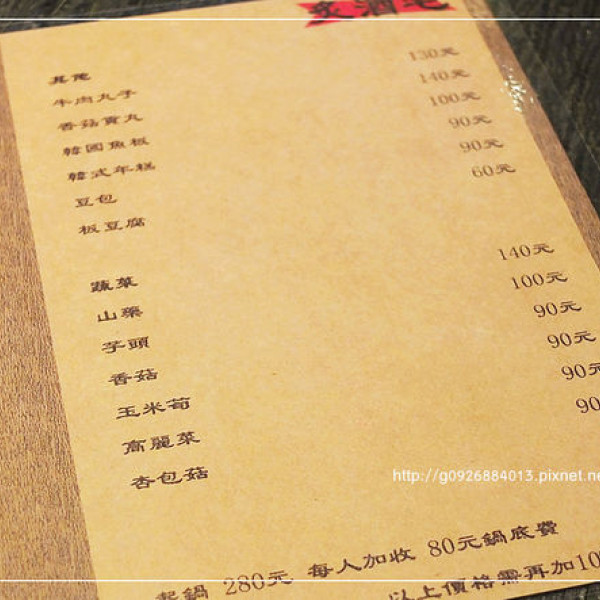 炙酒宅
其他
牛肉丸子 130元
香菇貢丸 140元
韓國魚板 100元
韓式年糕 90元
豆包 90元
板豆腐 60元
蔬菜
山藥 140元
芋頭 100元
香菇 90元
玉米筍 90元
高麗菜 90元
杏包菇 90
http://g0926884013.pixnet.ne
起鍋 280元 每人加收 80元鍋底費
以上價格需再加10